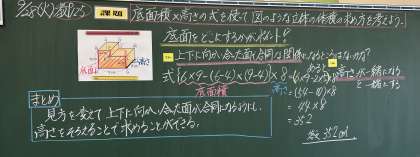 9/28(火)教125 課題 底面積×高さの式を使って図のような立体の体積の求め方を考えよう。
底面をどこにするかがポイント!
上下に向かい合った面が合同な関係
式{6×9-(6-4)×(9-4)}×8
底面積
高さ
高さが一緒になる
=(54-10)×8
=352
まとめ
見方を変えて、上下に向かい合った面が合同になるようにし、
高さをそろえることで求めることができる。